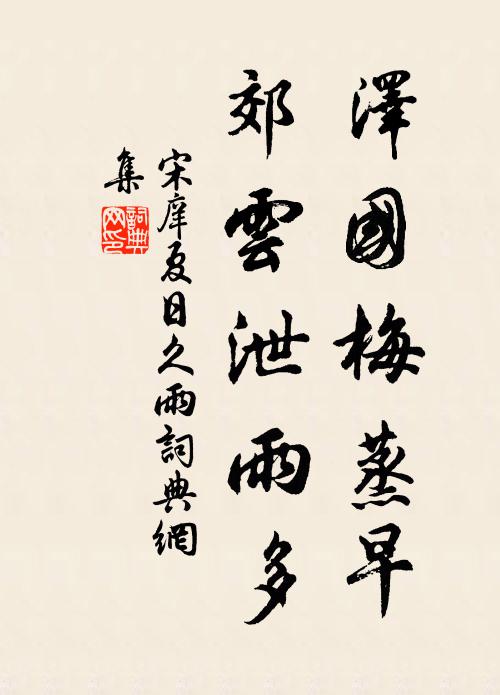 澤國梅蒸早
郊雲泄雨多
宋庠夏日久雨詞典網
集
詞典
网印